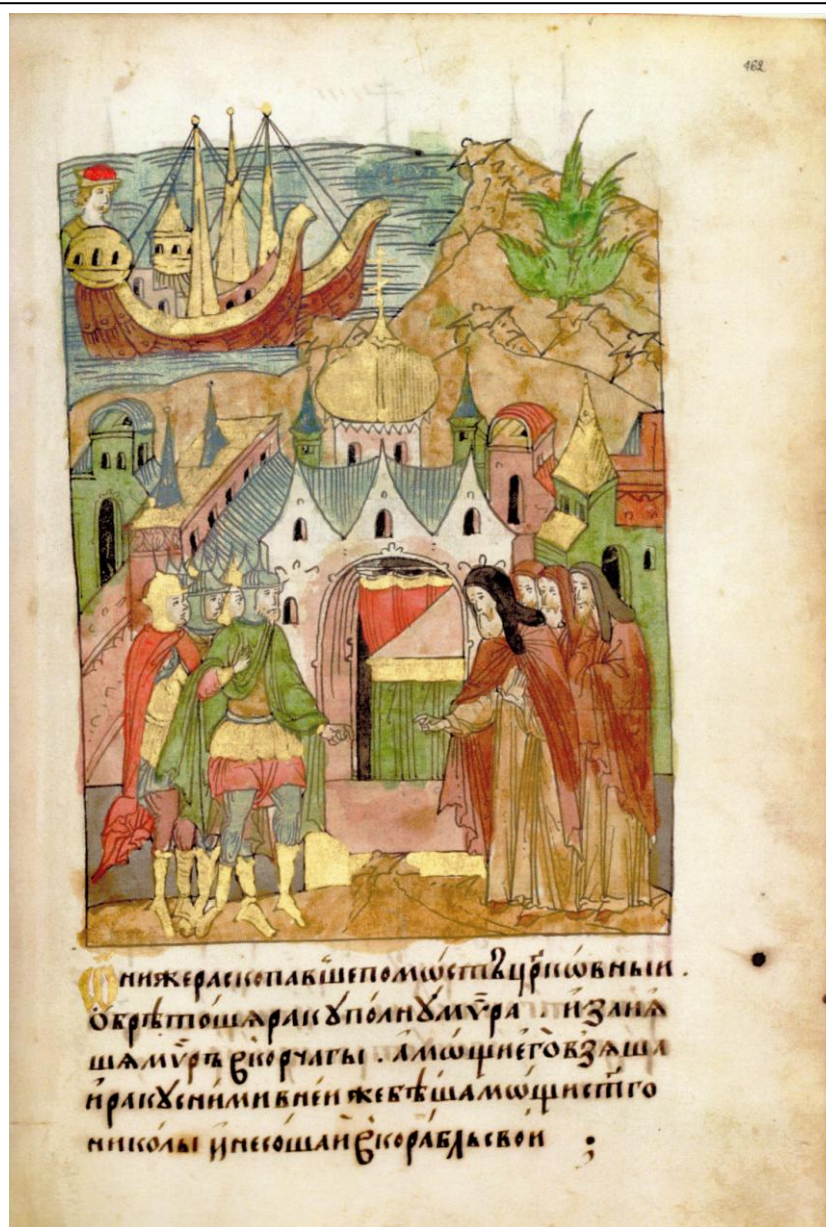 462
Ѡниже раскопавше помѡстъ цр҃кѡвныи .
ѡбрѣтоша раку полну мѵ̑ра . и заліѧ
ша мѵръ в корчагы . а мѡщи его взѧша
и раку с ними в неи же бѣша мѡщи ст҃го
николы и несоша и в корабль свои ⁏